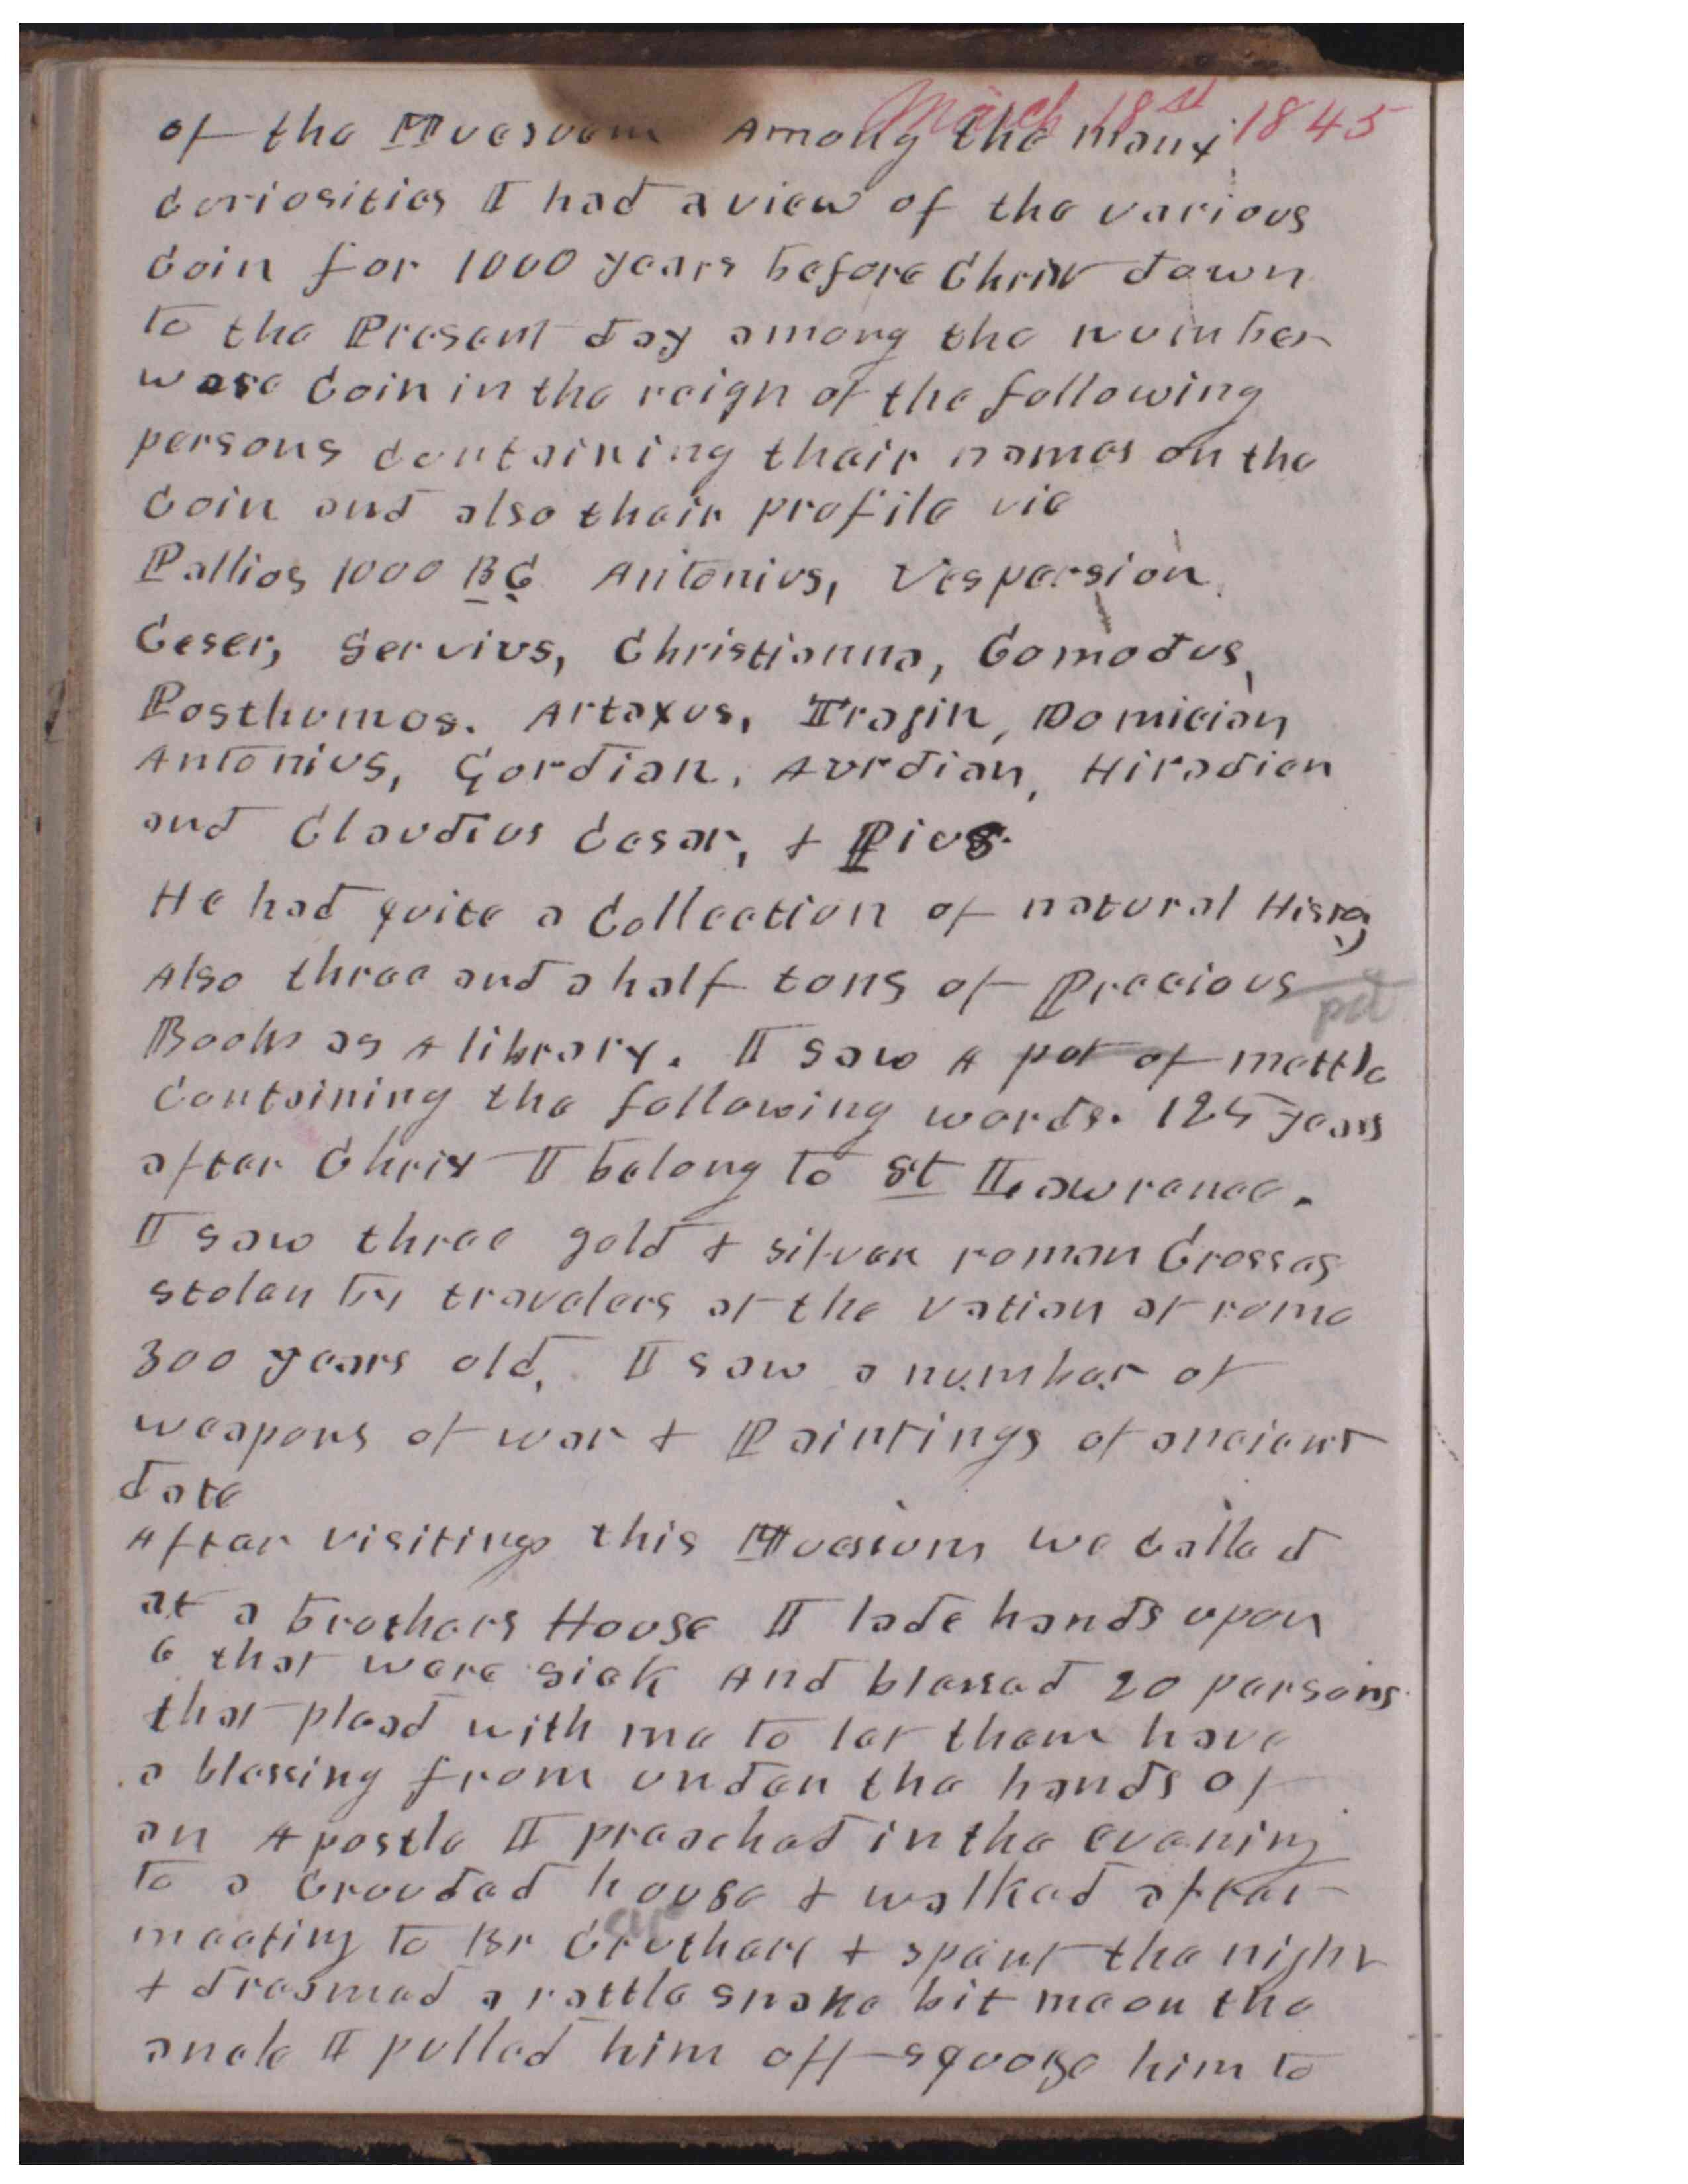 March 18st 1845
of the Muesuem Among the many
curiosities I had a view of the various
Coin for 1000 years before Christ down
to the Present day among the number
ware Coin in the reign of the following
persons containing thair names on the
Coin and also thair profile vic
Pallios 1000 BC Antonius, Vespersion
Ceser, Servius, Christianna, Comodus,
Posthumos. Artaxus, Trajin, Domician
Antonius, Gordian, Aurdian, Hiradien
and Claudius Cesar, + Pius.
He had quite a Collection of natural History
Also three and a half tons of Precious
pot
Books as A library. I saw A pot of mettle
Containing the following words. 125 years
after Christ I belong to St Lawrence.
I saw three gold + silver roman Crosses
stolen by travelers at the vatian at rome
300 years old, I saw a number of
weapons of war + Paintings of ancient
date
After visiting this Muesium we Called
at a brothers House I lade hands upon
6 that were sick And blessed 20 persons
that plead with me to let them have
a blessing from under the hands of
an Apostle I preached in the evening
to a Crouded house + walked after
ar
meeting to Br Cruthers + spent the night
+ dreamed a rattle snake bit me on the
ancle I pulled him off squoze him to